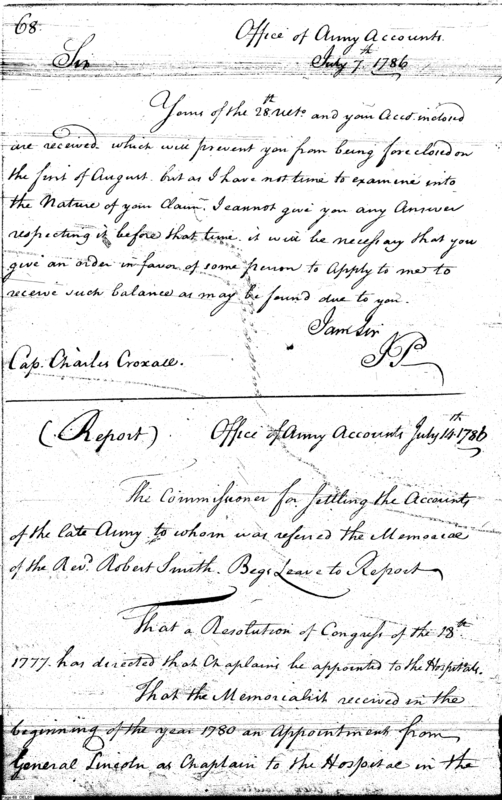 68
Office of Army Accounts.
July 7th 1786
Sir
Yours of the 28th ulto. and your Accot. inclosed
are received which will prevent you from being foreclosed on
the first of August. but as I have not time to examine into
the Nature of your Claim, I cannot give you any Answer
respecting it before that time. it will be necessary that you
give an order in favor of some person to Apply to me to
receive such balance as may be found due to you.
I am Sir
JP
Cap. Charles Croxall.
(Report) Office of Army Accounts July 14th 1786
The Commissioner for settling the Accounts
of the late Army to whom was referred the Memorial
of the Revd. Robert Smith. Begs Leave to Report
That a Resolution of Congress of the 18th
1777. has directed that Chaplains be appointed to the Hospitals.
That the Memorialist received in the
beginning of the year 1780 an Appointment from
General Lincoln as Chaplain to the Hospital in the